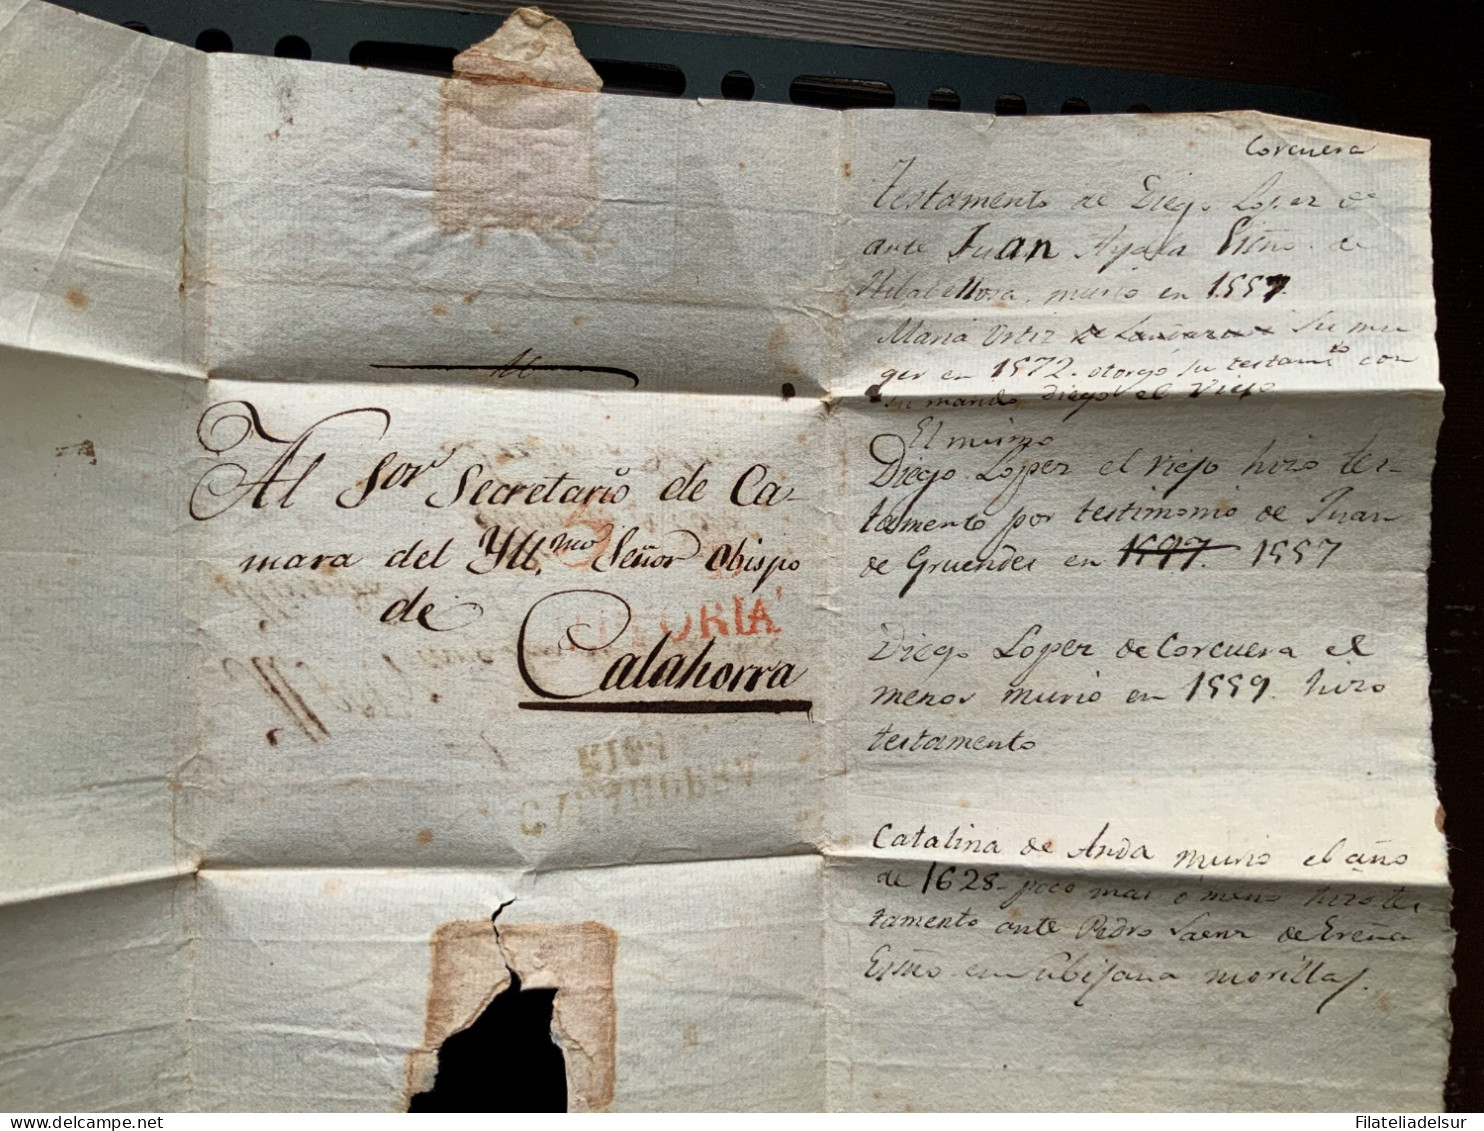 Al Sor. Secretario de Ca-
mara del Yll.mo Señor Obispo
de
Calahorra
VITORIA
RIOJA
CALAHORRA
Corcuera
Testamento de Diego Lopez de
ante Juan Ayala Essno. de
murio en 1557
Maria Ortiz de su mu
ger en 1572. otorgó su testam.to con
su marido Diego el Viejo
El mismo
Diego Lopez el viejo hizo tes-
tamento por testimonio de Juan
de Gruendes en 1597. 1557
Diego Lopez de Corcuera el
menor murio en 1559. hizo
testamento
Catalina de Anda murio el año
de 1628- poco mas ó meno hizo tes-
tamento ante Pedro Saenz de Ereña
Essno en Ubisana morillas.
Filateliadelsur
delcampe.net